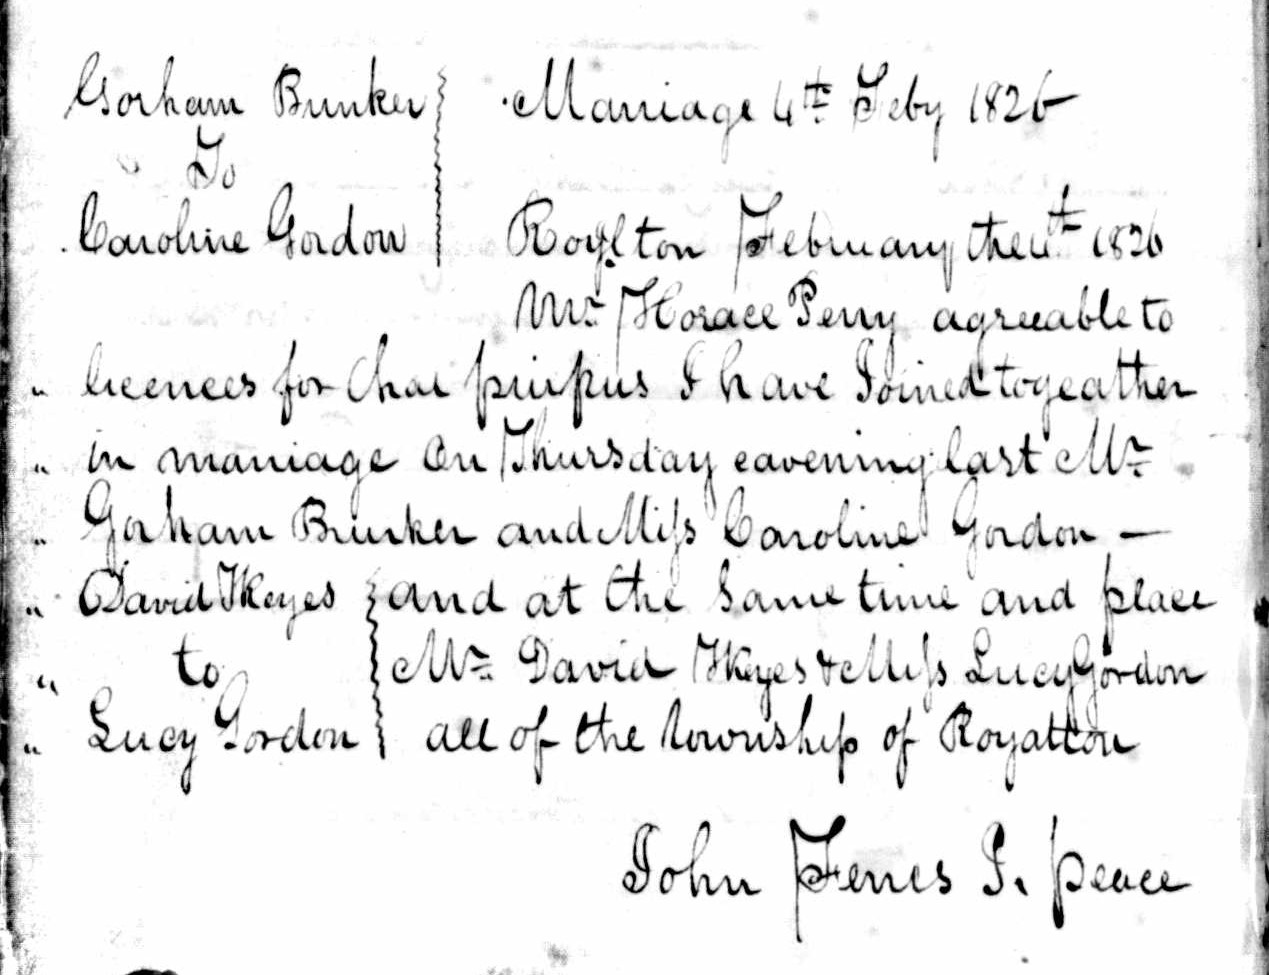 Gorham Bunker Marriage 4th Feby 1826
To
Caroline Gordon Roylton February the 4th 1826
Mr. Horace Perry agreeable to
" licences for that purpus I have Joined togeather
" in marriage On Thursday eavening last Mr.
" Gorham Bunker and Miss Caroline Gordon —
" David Keyes and at the Same time and place
" to Mr. David Keyes & Miss Lucy Gordon
" Lucy Gordon all of the township of Royalton
John Ferris J. peace